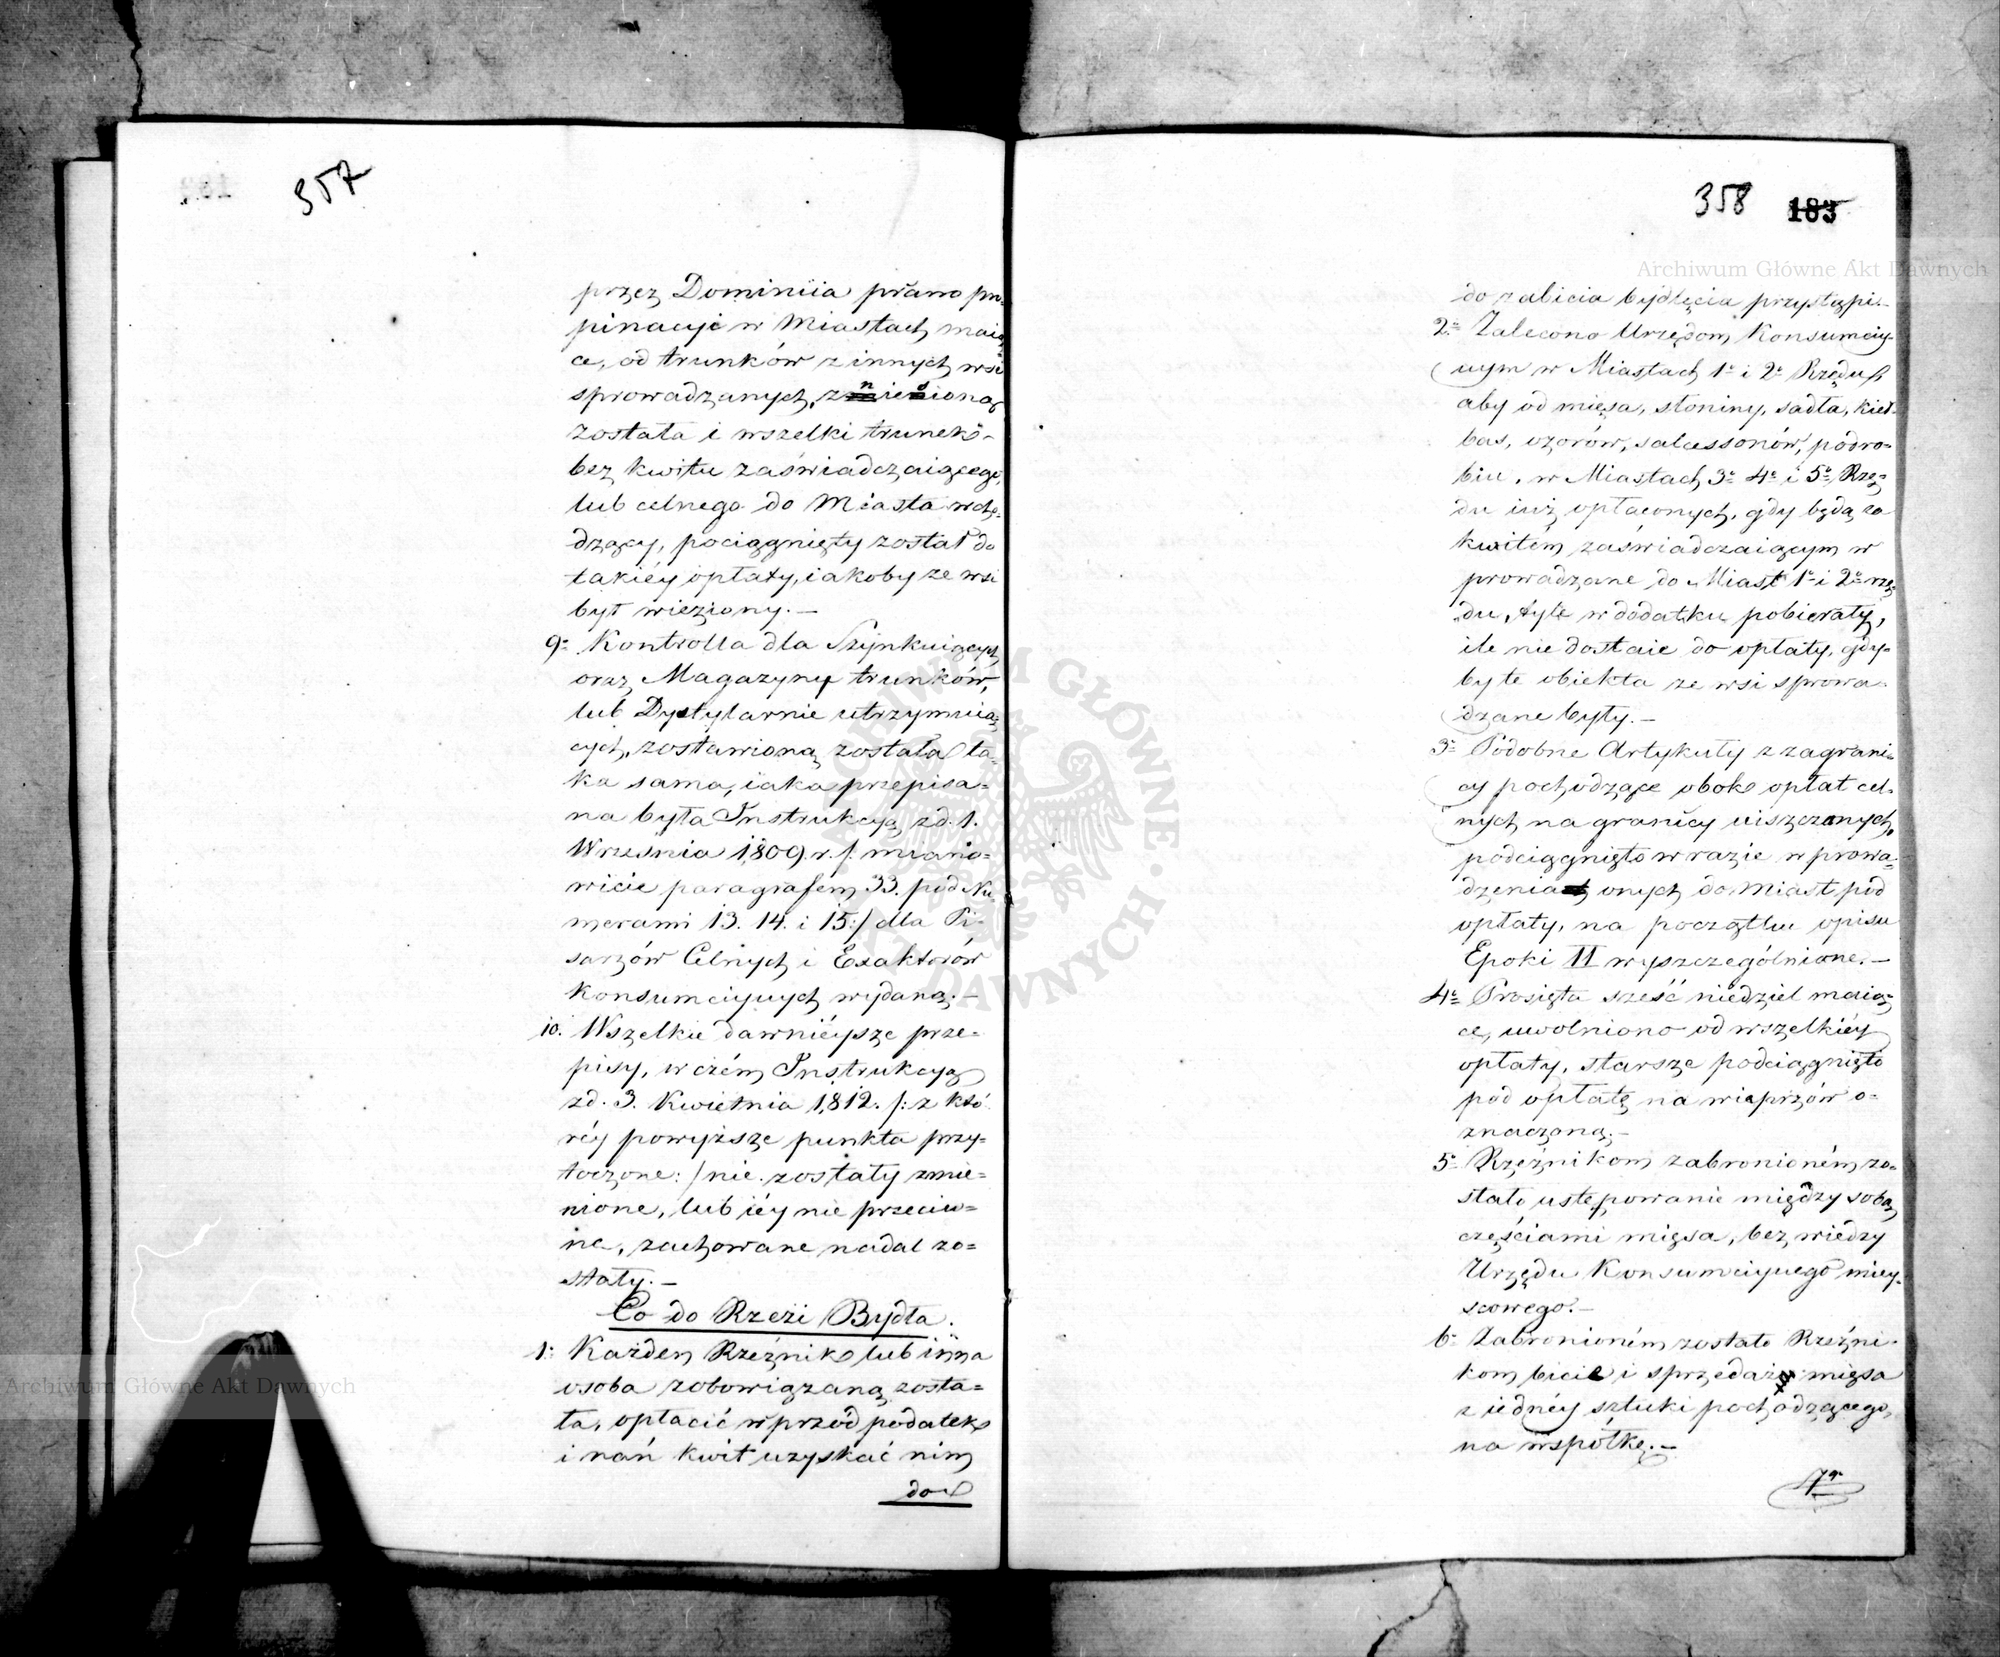 357
przez Dominiia prawo pro-
pinacyi w Miastach maią-
ce, od trunków z innych wsi
sprowadzanych, zniesioną
została i wszelki trunek
bez kwitu zaświadczaiącego,
lub celnego do Miasta wcho-
dzący, pociągnięty został do
takiéy opłaty, iakoby ze wsi
był wieziony. —
9o Kontrolla dla Szynkuiących
oraz Magazyny trunków,
lub Dystylarnie utrzymuią-
cych, zostawioną została ta-
ka sama, iaka przepisa-
na była Instrukcyą z d. 1.
Września 1809. r. /: miano-
wicie paragrafem 33. pod Nu-
merami 13. 14. i 15:/ dla Pi-
sarzów Celnych i Exaktorów
Konsumcyynych wydaną. —
10. Wszelkie dawniéysze prze-
pisy, w czém Instrukcyą
z d. 3. Kwietnia 1812. /: z któ-
réy powyższe punkta przy-
toczone :/ nie zostały zmie-
nione, lub iéy nie przeciw-
ne, zachowane nadal zo-
stały. —
Co do Rzezi Bydła.
1o Każden Rzeźnik lub inna
osoba zobowiązaną zosta-
ła, opłacić wprzód podatek
i nań kwit uzyskać nim
do
358 183
do zabicia bydlęcia przystąpi. —
2o Zalecono Urzędom Konsumcyy-
nym w Miastach 1o i 2o Rzędu,
aby od mięsa, słoniny, sadła, kieł-
bas, ozorów, salcessonów, podro-
biu, w Miastach 3o 4o i 5o Rzę-
du iuż opłaconych, gdy będą za
kwitem zaświadczaiącym w
prowadzane do Miast 1o i 2o rzę-
du, tyle w dodatku pobierały,
ile nie dostaie do opłaty, gdy-
by te obiekta ze wsi sprowa-
dzane były. —
3o Podobne Artykuły z zagrani-
cy pochodzące obok opłat cel-
nych na granicy uiszczonych,
podciągnięto w razie w prowa-
dzenia onych do Miast pod
opłaty, na początku opisu
Epoki II wyszczególnione. —
4o Prosięta sześć niedziel maią-
ce, uwolniono od wszelkiéy
opłaty, starsze podciągnięto
pod opłatę na wieprzów o-
znaczoną. —
5o Rzeźnikom zabronioném zo-
stało ustępowanie między sobą
częściami mięsa, bez wiedzy
Urzędu Konsumcyynego miey-
scowego. —
6o Zabronioném zostało Rzeźni-
kom bicie i sprzedaż mięsa
z iednéy sztuki pochodzącego,
na wspołkę. —
7o
Archiwum Główne Akt Dawnych
Archiwum Główne Akt Dawnych
ARCHIWUM GŁÓWNE AKT DAWNYCH